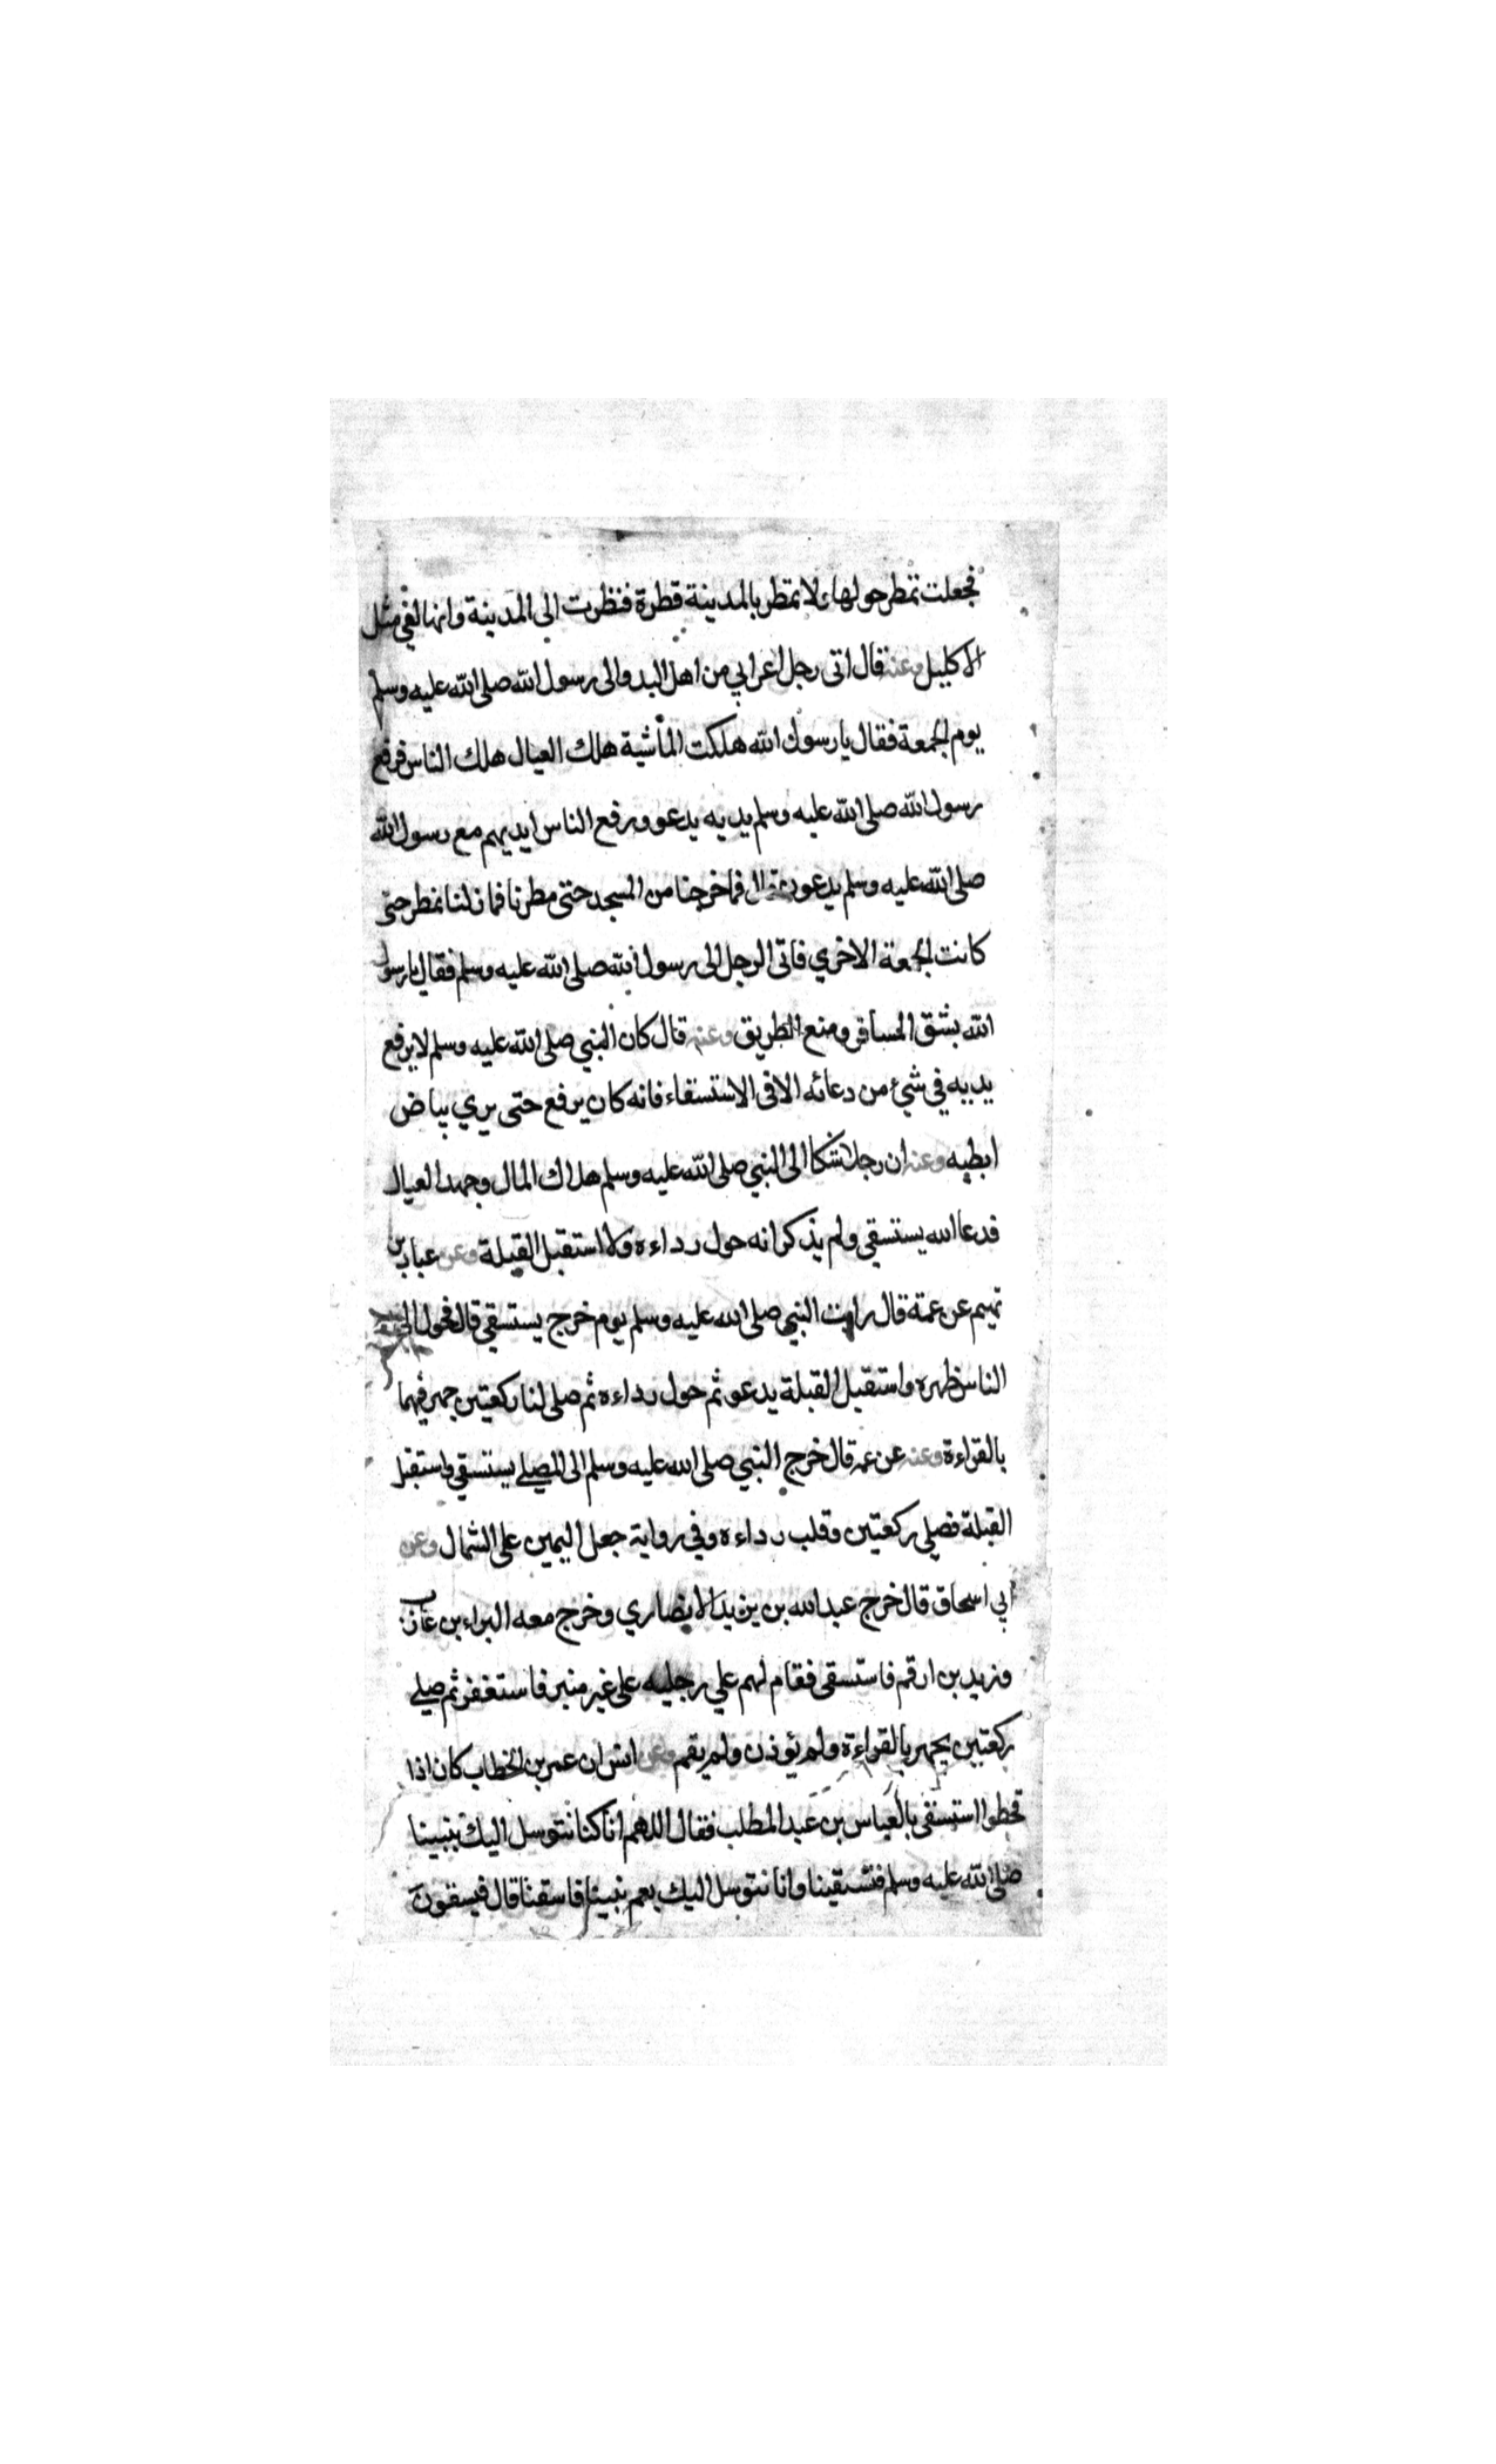 فجعلت تمطر حولها ولا تمطر بالمدينة قطرة فنظرت الى المدينة وانها لفي مثل
الاكليل وعنه قال اتى رجل اعرابي من اهل البدو الى رسول الله صلى الله عليه وسلم
يوم الجمعة فقال يا رسول الله هلكت الماشية هلك العيال هلك الناس فرفع
رسول الله صلى الله عليه وسلم يديه يدعو ورفع الناس ايديهم مع رسول الله
صلى الله عليه وسلم يدعون قال فما خرجنا من المسجد حتى مطرنا فما زلنا نمطر حتى
كانت الجمعة الاخري فاتى الرجل الى رسول الله صلى الله عليه وسلم فقال يا رسول
الله بشق المسافر ومنع الطريق وعنه قال كان النبي صلى الله عليه وسلم لا يرفع
يديه في شيء من دعائه الا في الاستسقاء فانه كان يرفع حتى يري بياض
ابطيه وعنه ان رجلا شكا الى النبي صلى الله عليه وسلم هلاك المال وجهد العيال
فدعا الله يستسقي ولم يذكر انه حول رداءه ولا استقبل القبلة وعن عباد بن
تميم عن عمة قال رايت النبي صلى الله عليه وسلم يوم خرج يستسقي قال فحول الى
الناس ظهره واستقبل القبلة يدعو ثم حول رداءه ثم صلى لنا ركعتين جهر فيهما
بالقراءة وعنه عن عمه قال خرج النبي صلى الله عليه وسلم الى المصلي يستسقي واستقبل
القبلة فصلي ركعتين وقلب رداءه وفي رواية جعل اليمين على الشمال وعن
ابي اسحاق قال خرج عبد الله بن يزيد الانصاري وخرج معه البراء بن عازب
وزيد بن ارقم فاستسقى فقام لهم علي رجليه على غير منبر فاستغفر ثم صلي
ركعتين يجهر بالقراءة ولم يؤذن ولم يقم وعن انس ان عمر بن الخطاب كان اذا
قحطوا استسقى بالعباس بن عبد المطلب فقال اللهم انا كنا نتوسل اليك بنبينا
صلى الله عليه وسلم فتسقينا وانا نتوسل اليك بعم نبينا فاسقنا قال فيسقون